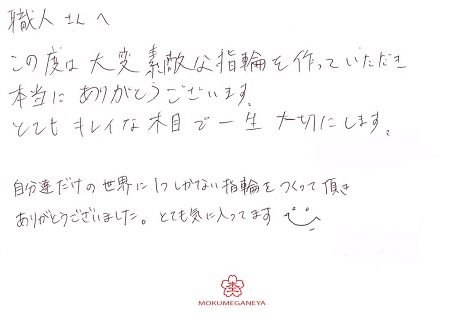 職人さんへ
この度は大変素敵な指輪を作っていただき
本当にありがとうございます。
とてもキレイな木目で一生大切にします。
自分達だけの世界に1つしかない指輪をつくって頂き
ありがとうございました。とても気に入ってます
MOKUMEGANEYA